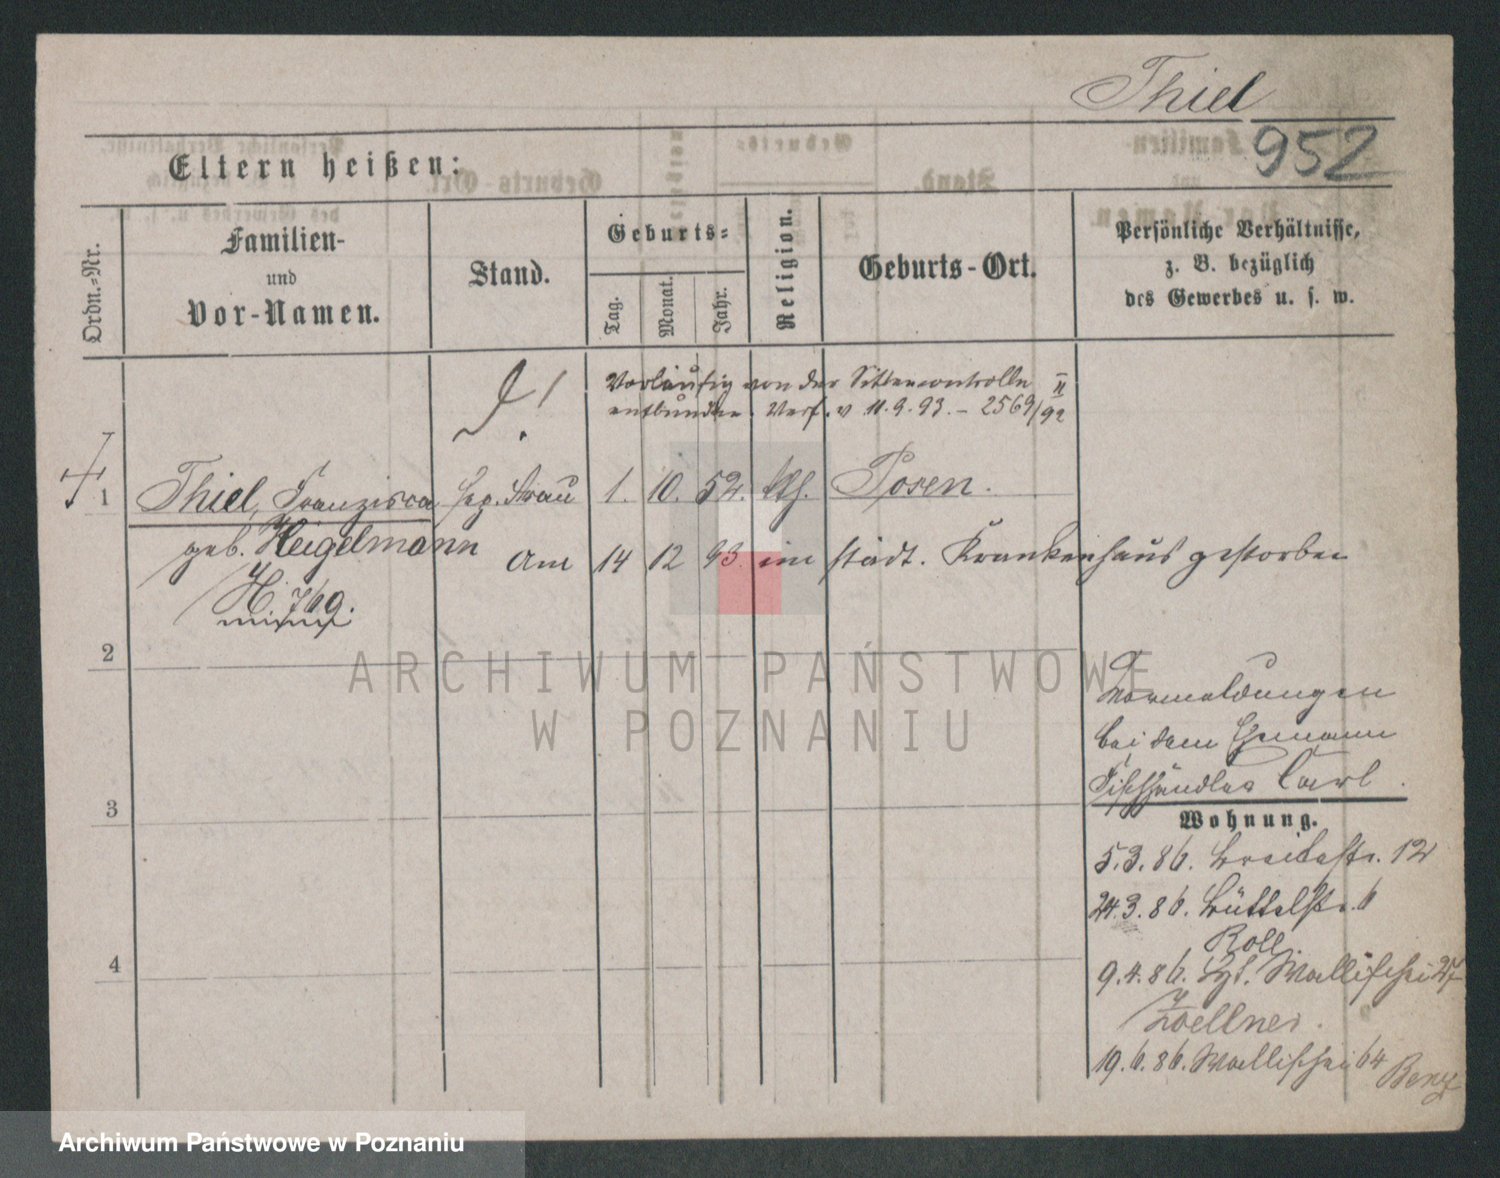 Thiel
952
Eltern heißen:
Ordn.-Nr.
Familien-
und
Vor-Namen.
Stand.
Geburts-
Tag.
Monat.
Jahr.
Religion.
Geburts-Ort.
Persönliche Verhältnisse,
z. B. bezüglich
des Gewerbes u. s. w.
Vorläufig von der Sittencontrolle
entbunden. Verf. v 11.9.93. – 2569/92 II
1 Thiel, Franziska sep. Frau 1. 10. 52. kth. Posen.
geb. Heigelmann Am 14 12 93 im städt. Krankenhaus gestorben
H. 769.
2
Vormeldungen
bei dem Ehemann
Fischhändler Carl.
3
Wohnung.
5.3.86. Breitestr. 12
24.3.86. Büttelstr. 6
Roll.
4
9.4.86. Wallischei 27
Zoellner.
19.6.86. Wallischei 64
ARCHIWUM PAŃSTWOWE
W POZNANIU
Archiwum Państwowe w Poznaniu